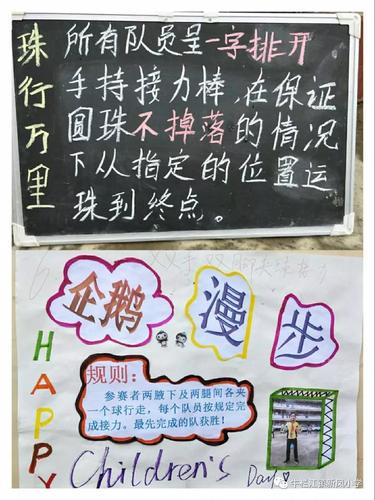 珠行万里
所有队员呈一字排开
手持接力棒,在保证
圆珠不掉落的情况
下从指定的位置运
珠到终点。
企鹅漫步
规则:
参赛者两腋下及两腿间各夹
一个球行走,每个队员按规定完
成接力。最先完成的队获胜!
HAPPY
Children's Day
牛栏江镇新风小学